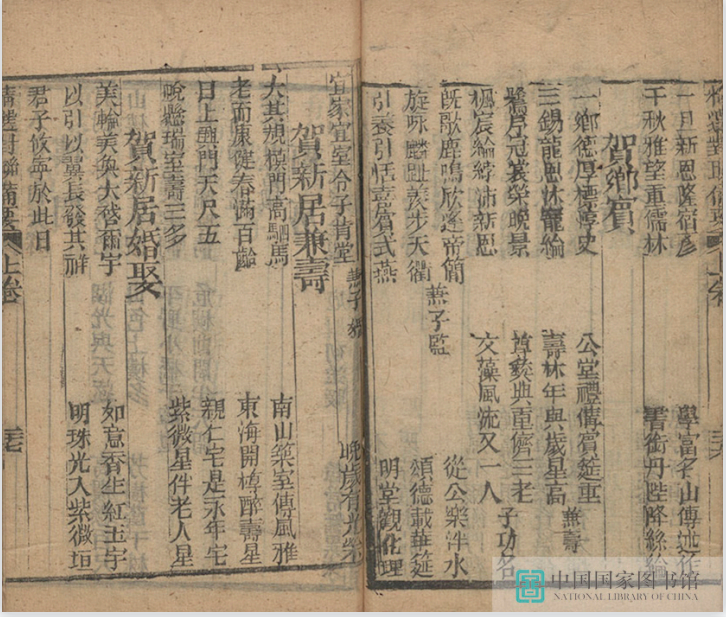 一旦新恩隆宿彥 學富名山傳述作
千秋雅望重儒林 書銜丹陛降絲綸
賀鄉賓
一鄉德厚 公堂禮備賓筵重
三錫龍恩休寵綸 壽林年與歲星高 兼壽
舊序冠裳榮晚景 尊兼典重儕三老
楓宸綸綍沛新恩 文藻風流又一人 子功名
既歌鹿鳴欣逢帝簡 從公樂泮水
旋咏麟趾羨步天衢 兼子監 頌德載華筵
引養引恬嘉賓式燕 明堂觀化理
宜家宜室令子肯堂 兼子 晚歲有光榮
賀新居兼壽
大其規模門高駟馬 南山築室傳風雅
老而康健春滿百齡 東海開樽醉壽星
日上興門天尺五 親仁宅是永年宅
晚懸瑞室壽三多 紫微星伴老人星
賀新居婚娶
美輪美奐大啓爾宇 如意香生紅玉宇
以引以翼長發其祥 明珠光入紫微垣
君子攸寧於此日
上卷
中国国家图书馆
NATIONAL LIBRARY OF CHINA